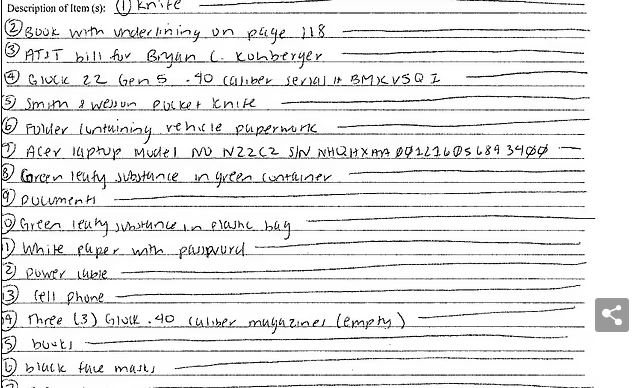 Description of Item (s): (1) Knife
(2) Book with underlining on page 118
(3) AT&T bill for Bryan C. Kohberger
(4) Glock 22 Gen 5 .40 caliber serial #
(5) Smith & Wesson pocket knife
(6) Folder containing vehicle paperwork
(7) Acer laptop Model NO N22C2 S/N
(8) Green leafy substance in green container
(9) Documents
0) Green leafy substance in plastic bag
1) White paper with password
2) Power cable
3) Cell phone
4) Three (3) Glock .40 caliber magazines (empty)
5) books
6) black face masks